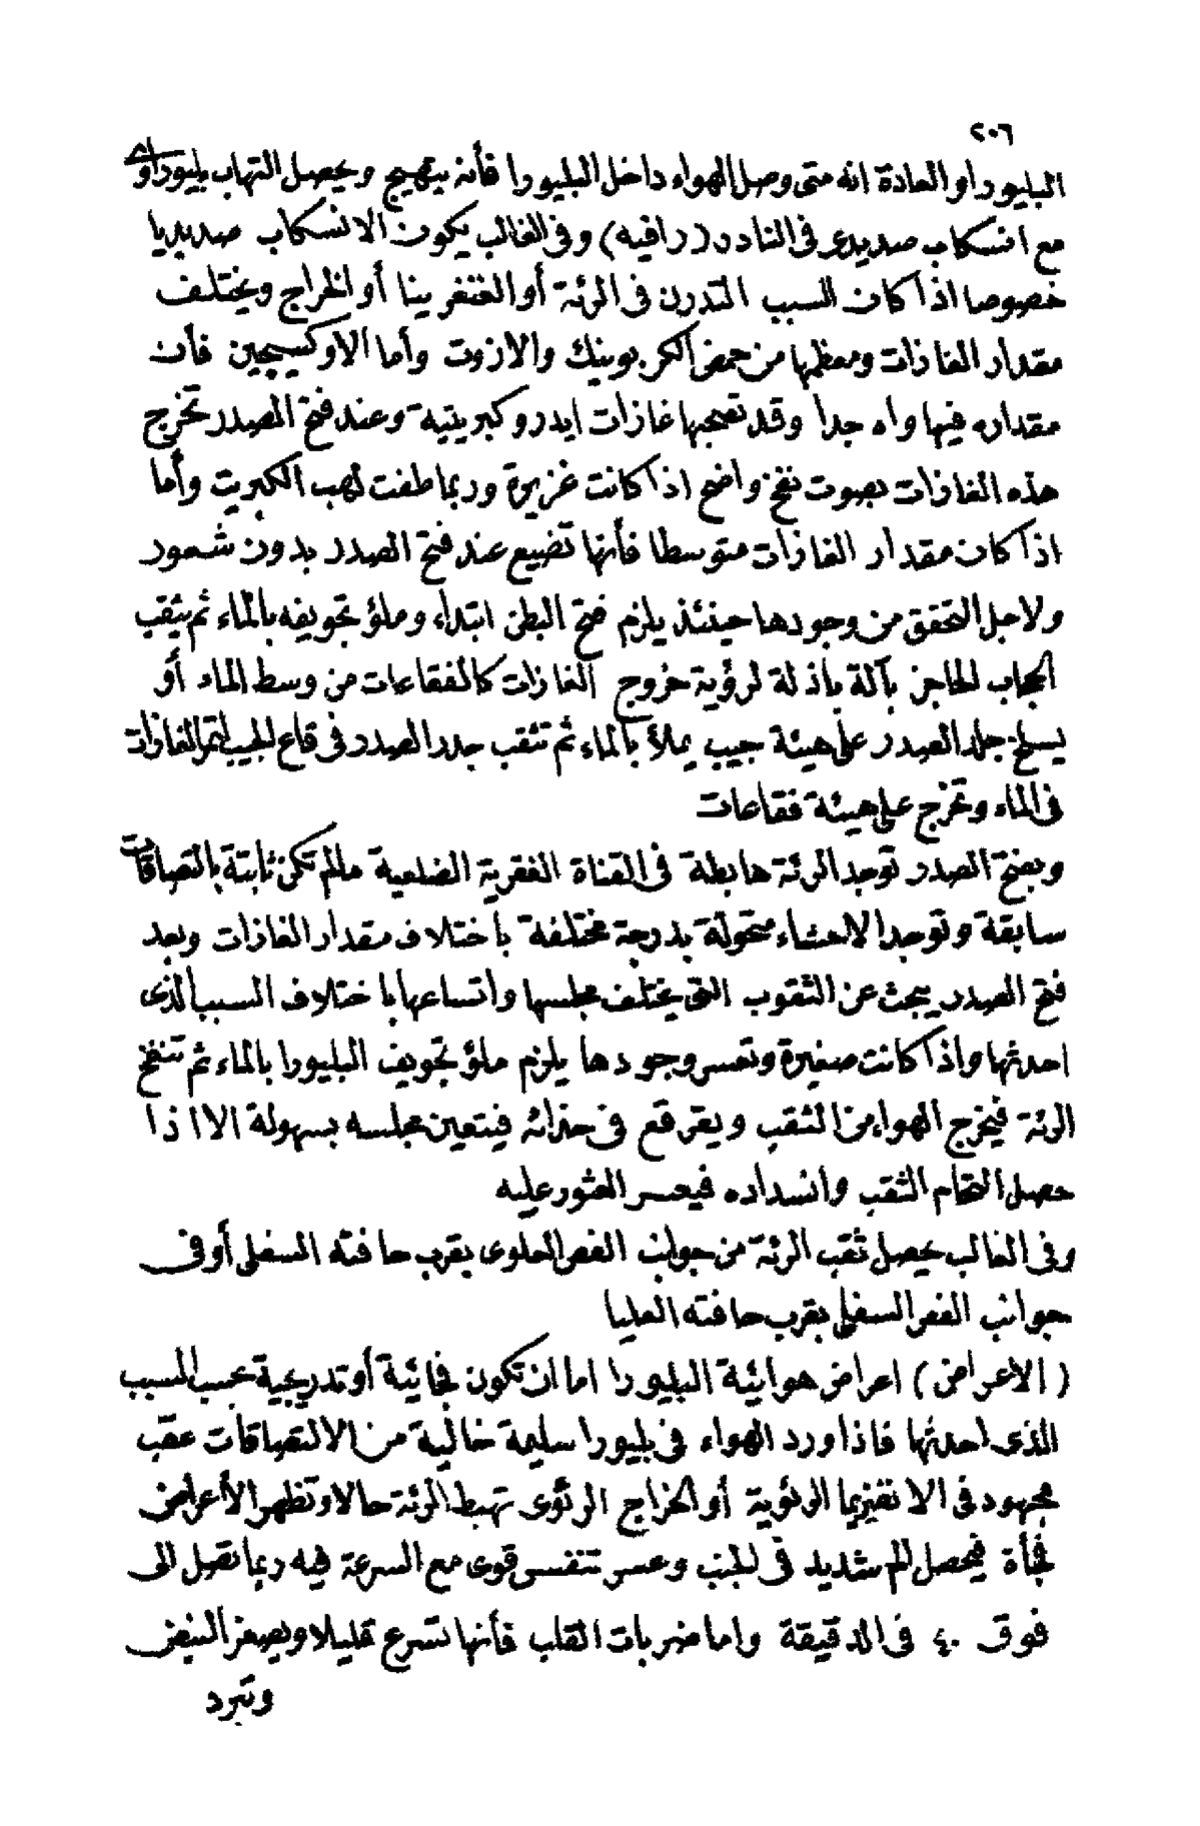 ٢٠٦
البليورا والعادة انه متى وصل الهواء داخل البليورا فأنه يتهيج ويحصل التهاب بليوراوى
مع انسكاب صديدى فى النادر (رافيه) وفى الغالب يكون الانسكاب صديديا
خصوصا اذا كان السبب التدرن فى الرئة أو الغنغرينا أو الخراج ويختلف
مقدار الغازات ومعظمها من حمض الكربونيك والازوت وأما الاوكسيجين فأن
مقداره فيها واه جدا وقد تصحبها غازات ايدروكبريتية وعند فتح الصدر تخرج
هذه الغازات بصوت نفخ واضح اذا كانت غزيرة وربما طفت لهب الكبريت وأما
اذا كان مقدار الغازات متوسطا فأنها تضيع عند فتح الصدر بدون شعور
ولاجل التحقق من وجودها حينئذ يلزم فتح البطن ابتداء وملؤ تجويفه بالماء ثم يثقب
الحجاب الحاجز بآلة باذلة لرؤية خروج الغازات كالفقاعات من وسط الماء أو
يسلخ جلد الصدر على هيئة جيب يملأ بالماء ثم تثقب جدر الصدر فى قاع الجيب لتمر الغازات
فى الماء وتخرج على هيئة فقاعات
وبفتح الصدر توجد الرئة هابطة فى القناة الفقرية الضلعية مالم تكن ثابتة بالتصاقات
سابقة وتوجد الاحشاء متحولة بدرجة مختلفة باختلاف مقدار الغازات وبعد
فتح الصدر يبحث عن الثقوب التى يختلف مجلسها واتساعها باختلاف السبب الذى
احدثها واذا كانت صغيرة وتعسر وجودها يلزم ملؤ تجويف البليورا بالماء ثم تنفخ
الرئة فيخرج الهواء من الثقب ويقرقع فى حذائه فيتعين مجلسه بسهولة الا اذا
حصل التحام الثقب وانسداده فيعسر العثور عليه
وفى الغالب يحصل ثقب الرئة من جوانب الفص العلوى بقرب حافته السفلى أو فى
جوانب الفص السفلى بقرب حافته العليا
(الاعراض) اعراض هوائية البليورا اما ان تكون فجائية أو تدريجية بحسب السبب
الذى احدثها فاذا ورد الهواء فى بليورا سليمة خالية من الالتصاقات عقب
مجهود فى الانفزيما الرئوية أو الخراج الرئوى تهبط الرئة حالا وتظهر الأعراض
فجأة فيحصل الم شديد فى الجنب وعسر تنفس قوى مع السرعة فيه ربما تصل الى
فوق ٤٠ فى الدقيقة واما ضربات القلب فأنها تسرع قليلا ويصغر النبض
وتبرد